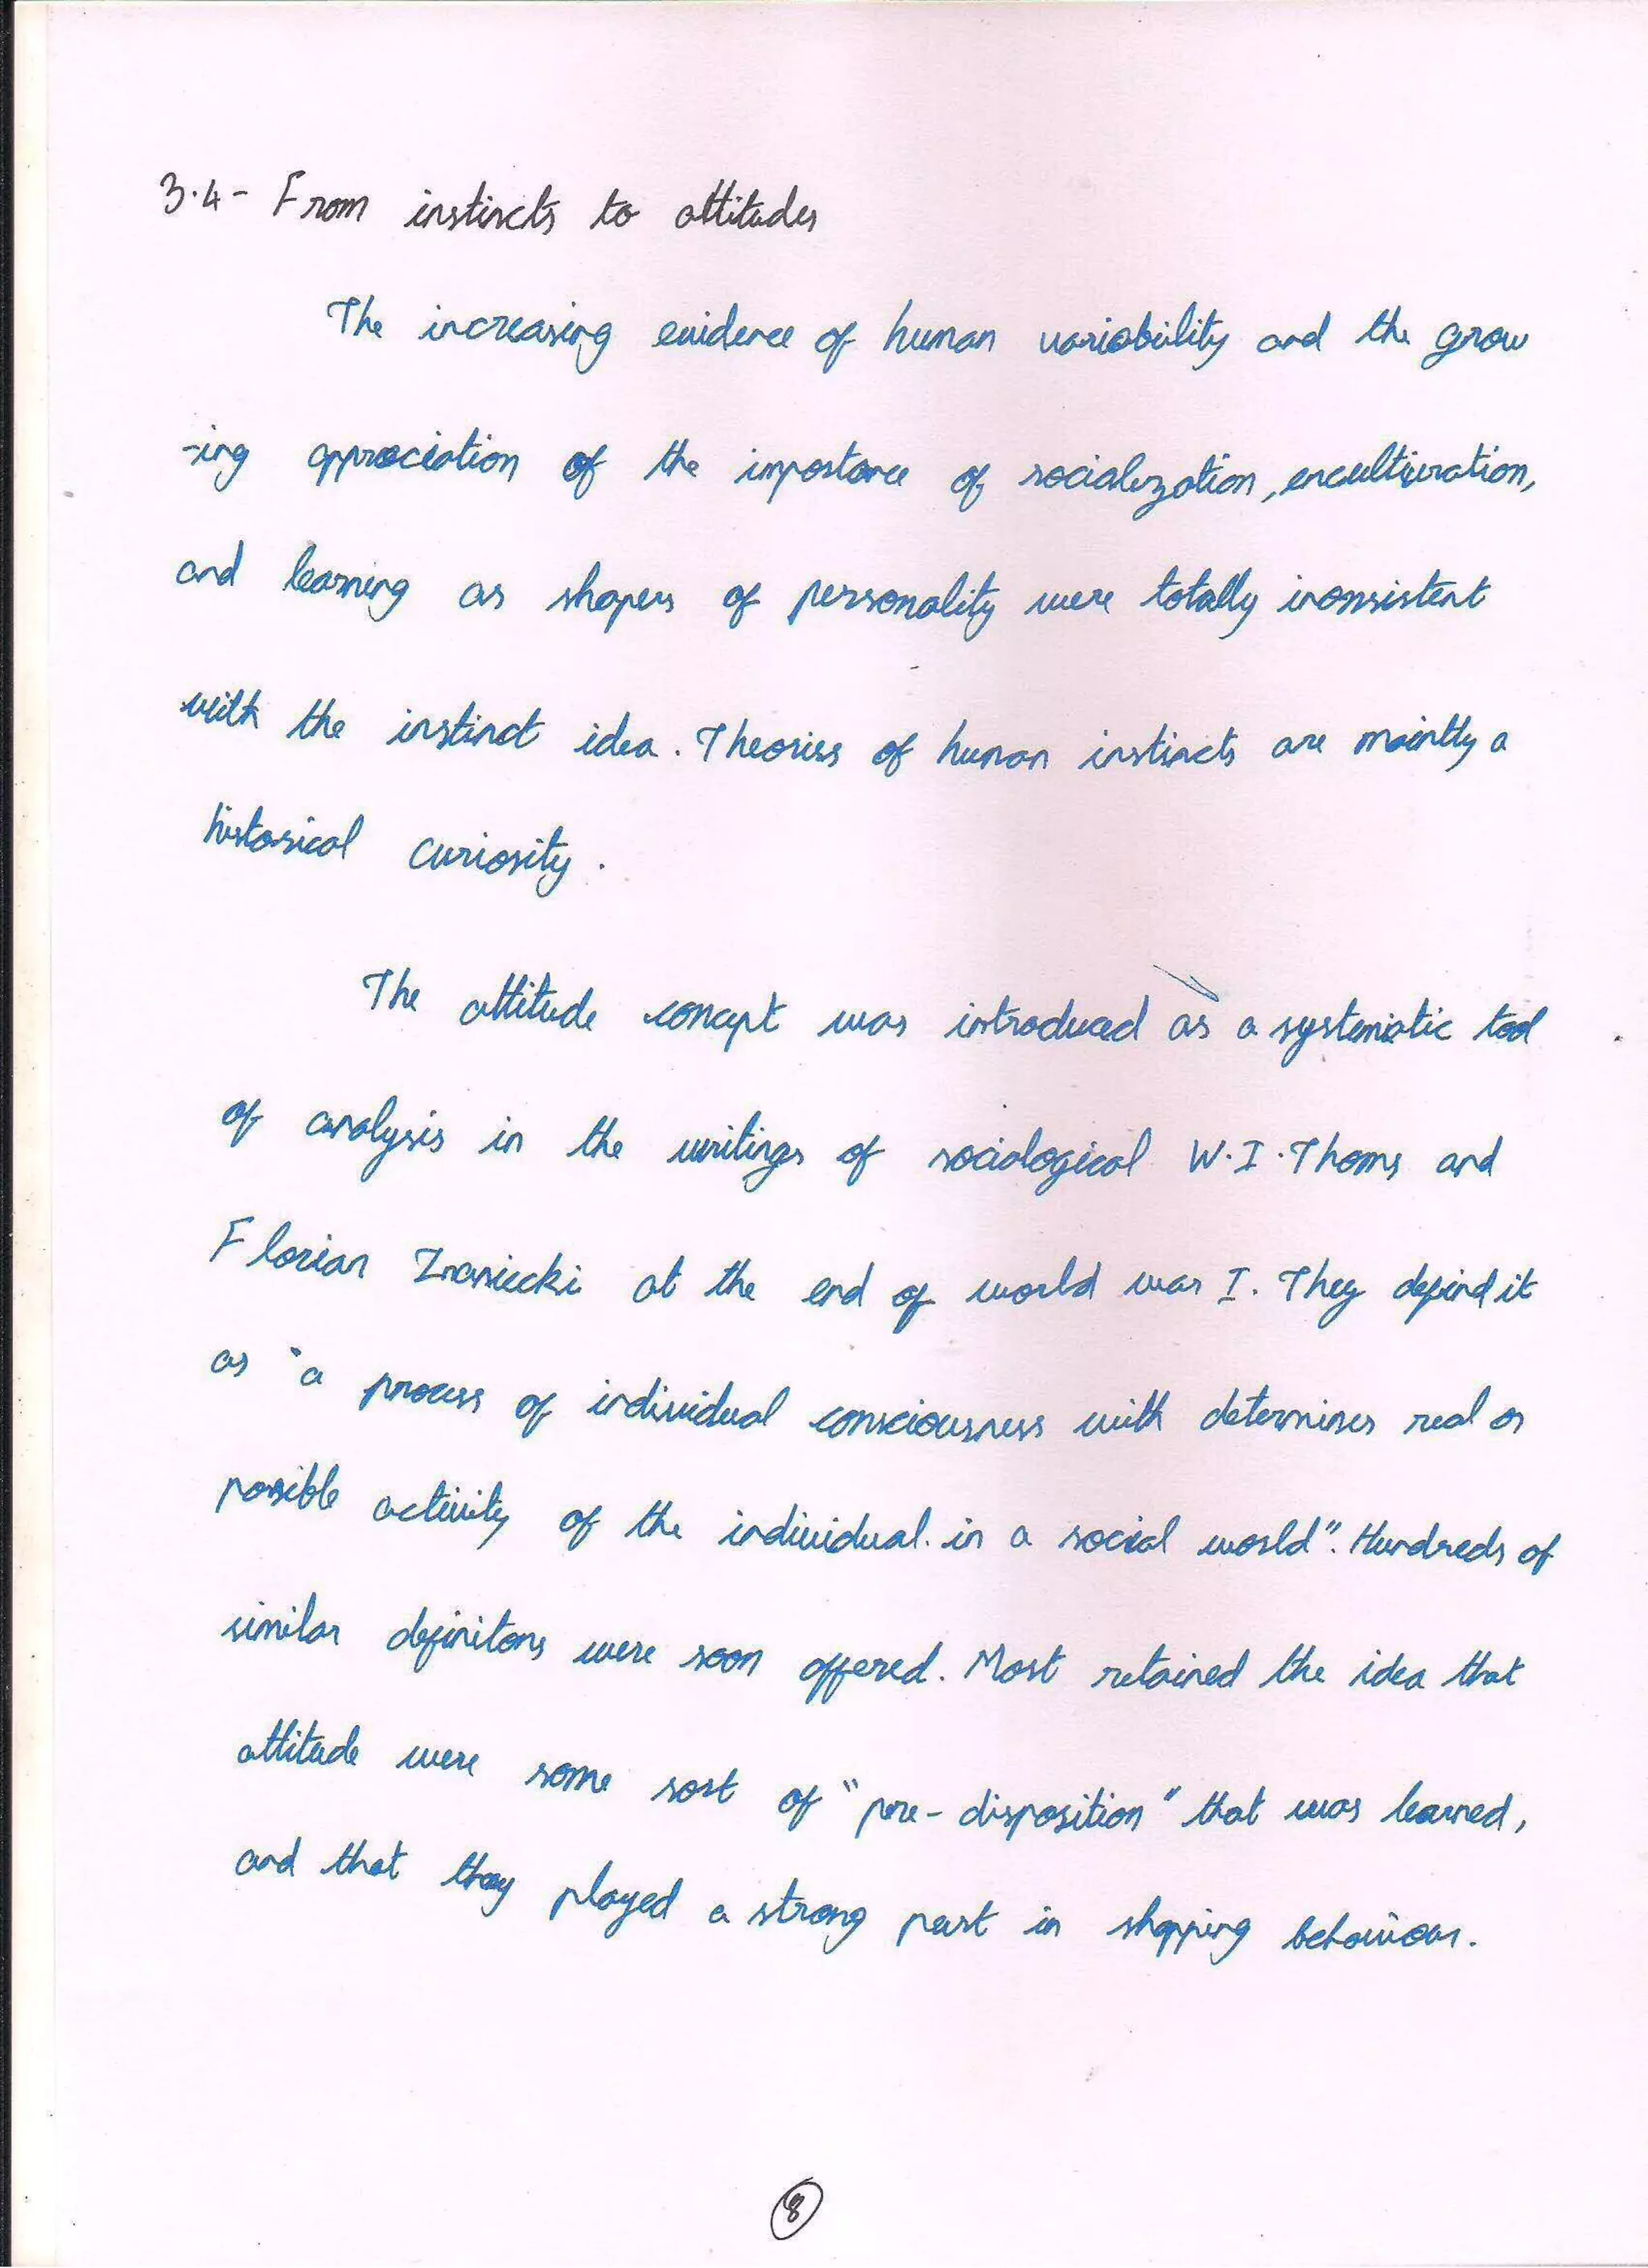 3.4- From instincts to attitudes
The increasing evidence of human variability and the grow
-ing appreciation of the importance of socialization, enculturation,
and learning as shapers of personality were totally inconsistent
with the instinct idea. Theories of human instincts are maintly a
historical curiosity.
The attitude concept was introduced as a systematic tool
of analysis in the writings of sociological W.I.Thoms and
Florian Znaniecki at the end of world war I. They defind it
as "a process of individual consciousness with determines real or
possible activity of the individual. in a social world". Hundreds of
similar definitons were soon offered. Most retained the idea that
attitude were some sort of "pre-disposition" that was learned,
and that they played a strong part in shapping behaviour.
8